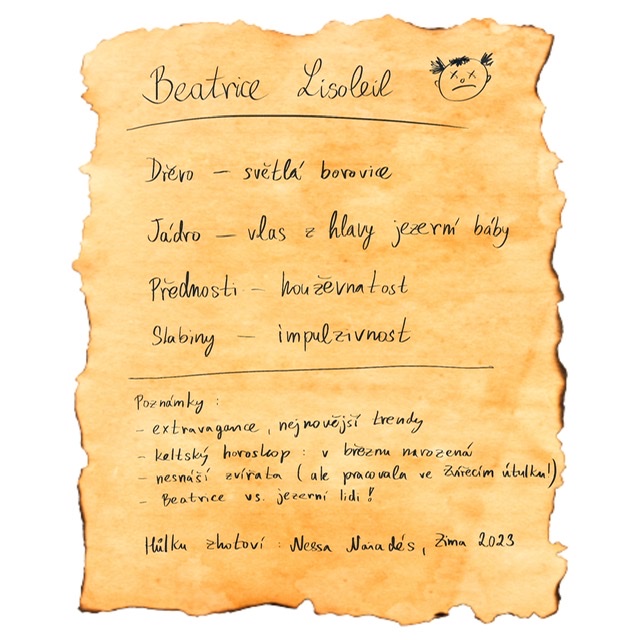 Beatrice Lisoleil
Dřevo – světlá borovice
Jádro – vlas z hlavy jezerní báby
Přednosti – houževnatost
Slabiny – impulzivnost
Poznámky :
- extravagance, nejnovější trendy
- keltský horoskop : v březnu narozená
- nesnáší zvířata (ale pracovala ve Zvířecím útulku!)
- Beatrice vs. jezerní lidi !
Hůlku zhotoví : Nessa Naradés, Zima 2023